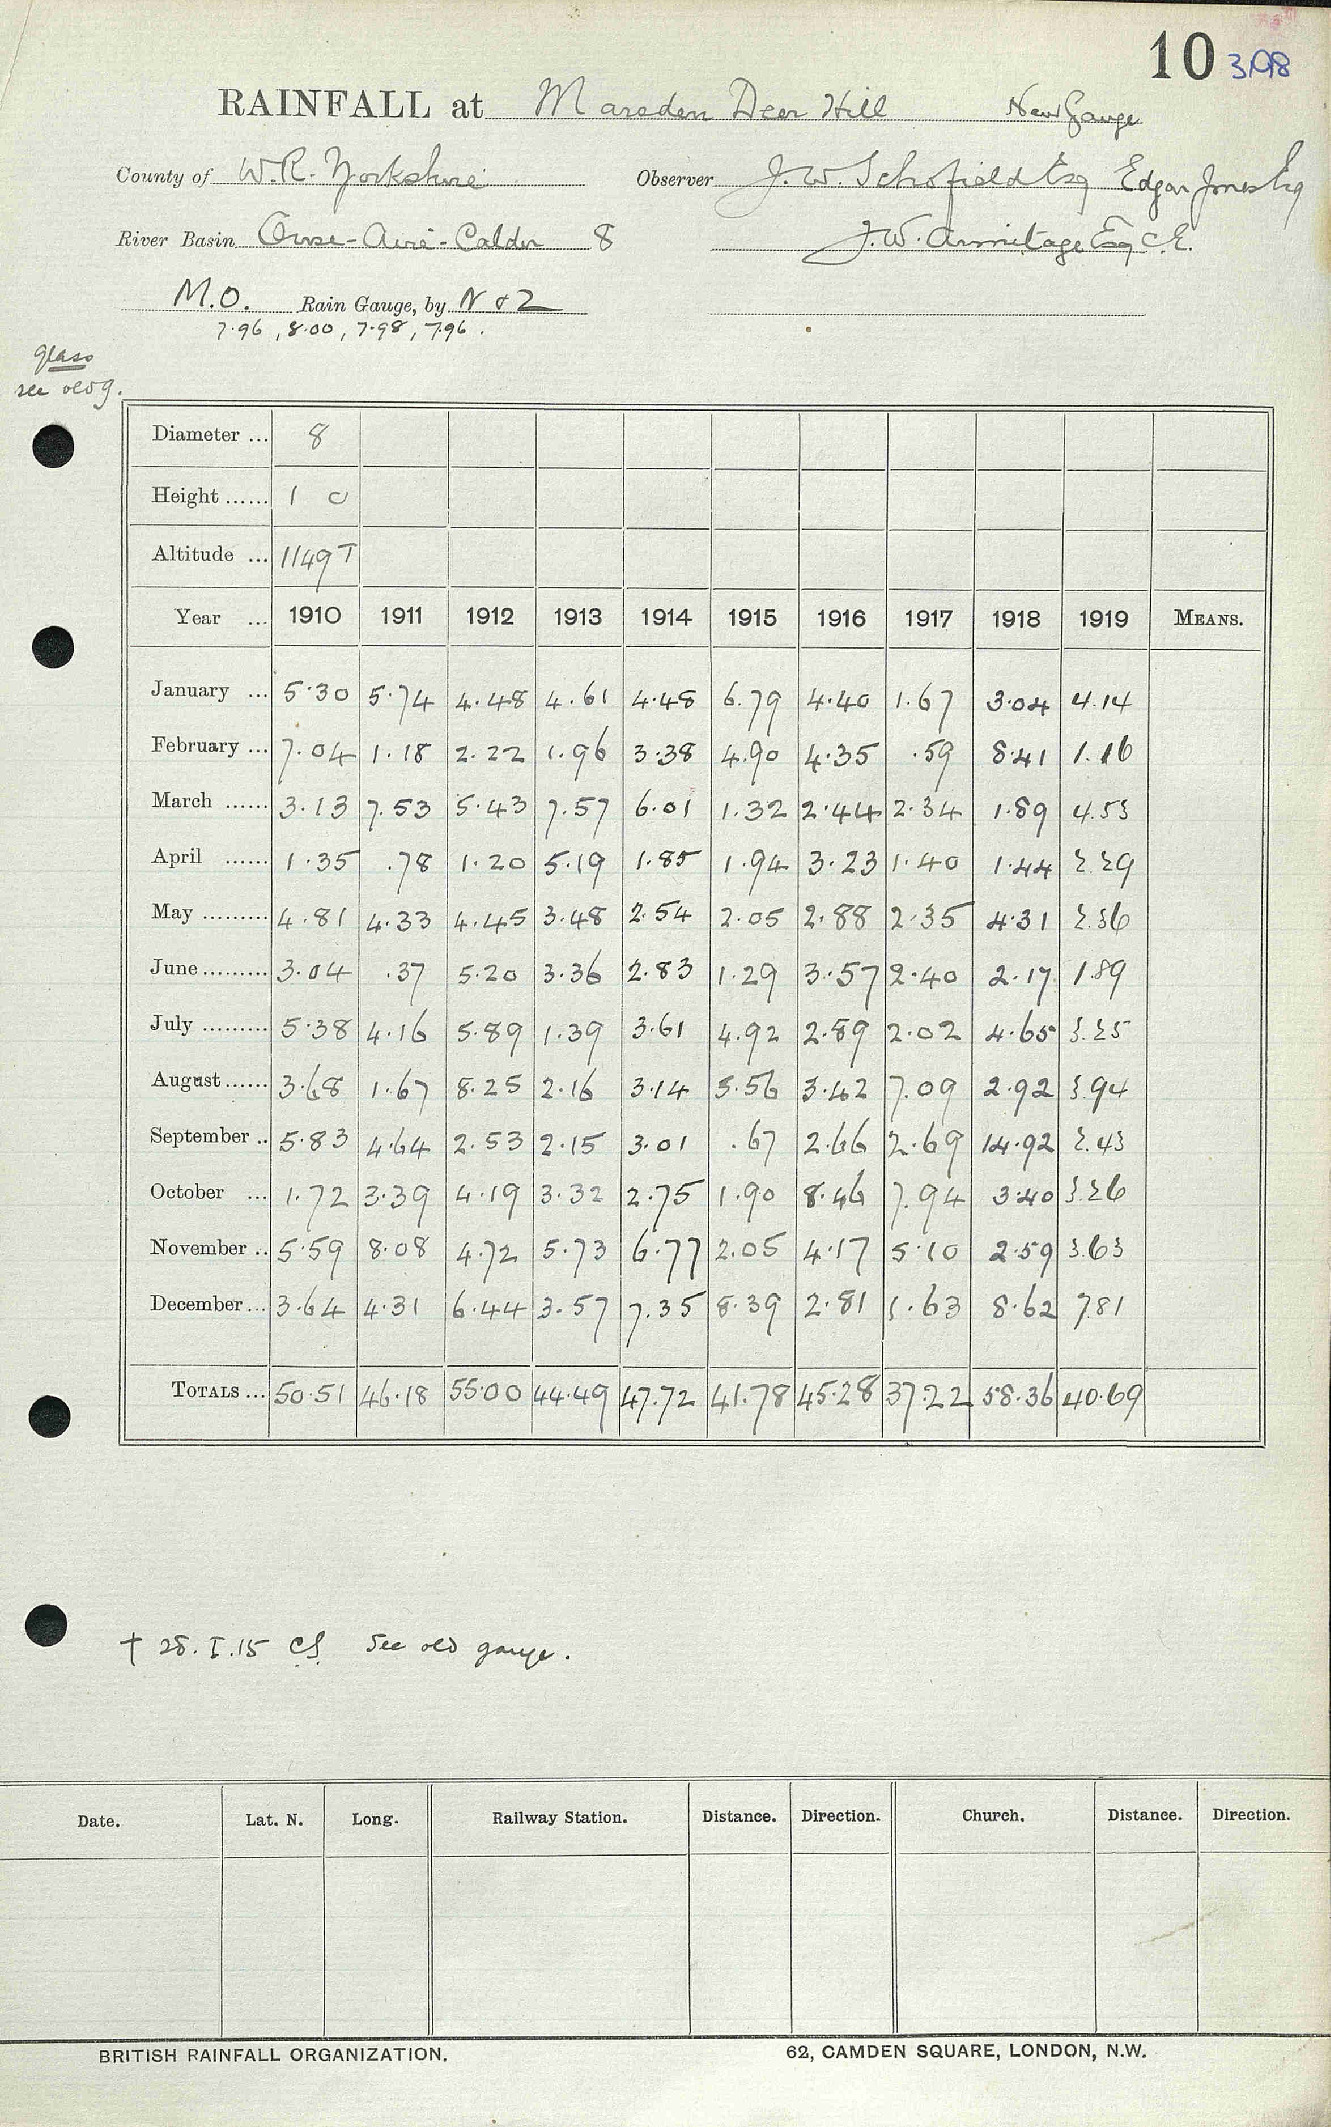 10 3198
RAINFALL at Marsden Deer Hill New Gauge
County of W.R. Yorkshire Observer J. W. Schofield Esq Edgar Jones Esq
River Basin Ouse-Aire-Calder 8 J.W. Armitage Esq C.E.
M.O. Rain Gauge, by N & Z
7.96, 8.00, 7.98, 7.96.
glass
see old g.
Diameter ... 8
Height ...... 1 0
Altitude ... 1149 T
Year ... 1910 1911 1912 1913 1914 1915 1916 1917 1918 1919 MEANS.
January ... 5.30 5.74 4.48 4.61 4.48 6.79 4.40 1.67 3.04 4.14
February ... 7.04 1.18 2.22 1.96 3.38 4.90 4.35 .59 8.41 1.16
March ...... 3.13 7.53 5.43 7.57 6.01 1.32 2.44 2.34 1.89 4.53
April ...... 1.35 .78 1.20 5.19 1.85 1.94 3.23 1.40 1.44 2.29
May ......... 4.81 4.33 4.45 3.48 2.54 2.05 2.88 2.35 4.31 2.36
June ......... 3.04 .37 5.20 3.36 2.83 1.29 3.57 2.40 2.17 1.89
July ......... 5.38 4.16 5.89 1.39 3.61 4.92 2.89 2.02 4.65 3.25
August ...... 3.68 1.67 8.25 2.16 3.14 5.56 3.42 7.09 2.92 3.94
September .. 5.83 4.64 2.53 2.15 3.01 .67 2.66 2.69 14.92 2.43
October ... 1.72 3.39 4.19 3.32 2.75 1.90 8.46 7.94 3.40 3.26
November .. 5.59 8.08 4.72 5.73 6.77 2.05 4.17 5.10 2.59 3.63
December ... 3.64 4.31 6.44 3.57 7.35 8.39 2.81 1.63 8.62 7.81
TOTALS ... 50.51 46.18 55.00 44.49 47.72 41.78 45.28 37.22 58.36 40.69
† 28.I.15 CS. See old gauge.
Date. Lat. N. Long. Railway Station. Distance. Direction. Church. Distance. Direction.
BRITISH RAINFALL ORGANIZATION. 62, CAMDEN SQUARE, LONDON, N.W.